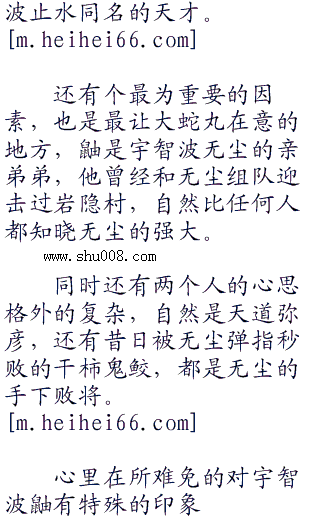 波止水同名的天才。
[m.heihei66.com]
还有个最为重要的因
素，也是最让大蛇丸在意的
地方，鼬是宇智波无尘的亲
弟弟，他曾经和无尘组队迎
去过岩隐村，自然比任何人
都知晓无尘的强大。
www.shu008.com
同时还有两个人的心思
格外的复杂，自然是天道弥
彦，还有昔日被无尘弹指秒
败的干柿鬼鲛，都是无尘的
手下败将。
[m.heihei66.com]
心里在所难免的对宇智
波鼬有特殊的印象